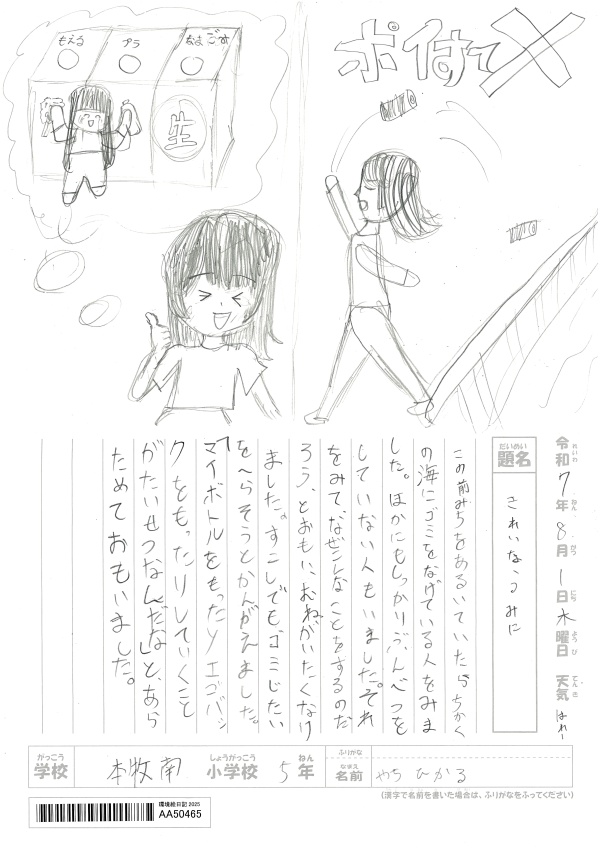 もえる
プラ
なまごみ
生
ポイすて
令和7年8月1日木曜日 天気 はれ
れいわ ねん がつ にち ようび てんき
だいめい
題名
きれいなうみに
この前みちをあるいていたら、ちかく
の海にゴミをなげている人をみま
した。ほかにもしっかりぶんべつを
していない人もいました。それ
をみて、なぜこんなことをするのだ
ろう、とおもい、おねがいたくなり
ました。すこしでもゴミじたい
をへらそうとかんがえました。
「マイボトルをもったりエコバッ
クをもったりしていくこと
がたいせつなんだな」と、あら
ためておもいました。
がっこう
学校
本牧南
しょうがっこう
小学校
5年
ねん
ふりがな
なまえ
名前
やち ひかる
(漢字で名前を書いた場合は、ふりがなをふってください)
環境絵日記2025
AA50465